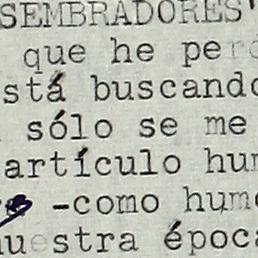 SEMBRADORES"
que he pe
stá buscando
sólo se me
artículo hum
-como humo
nuestra époc